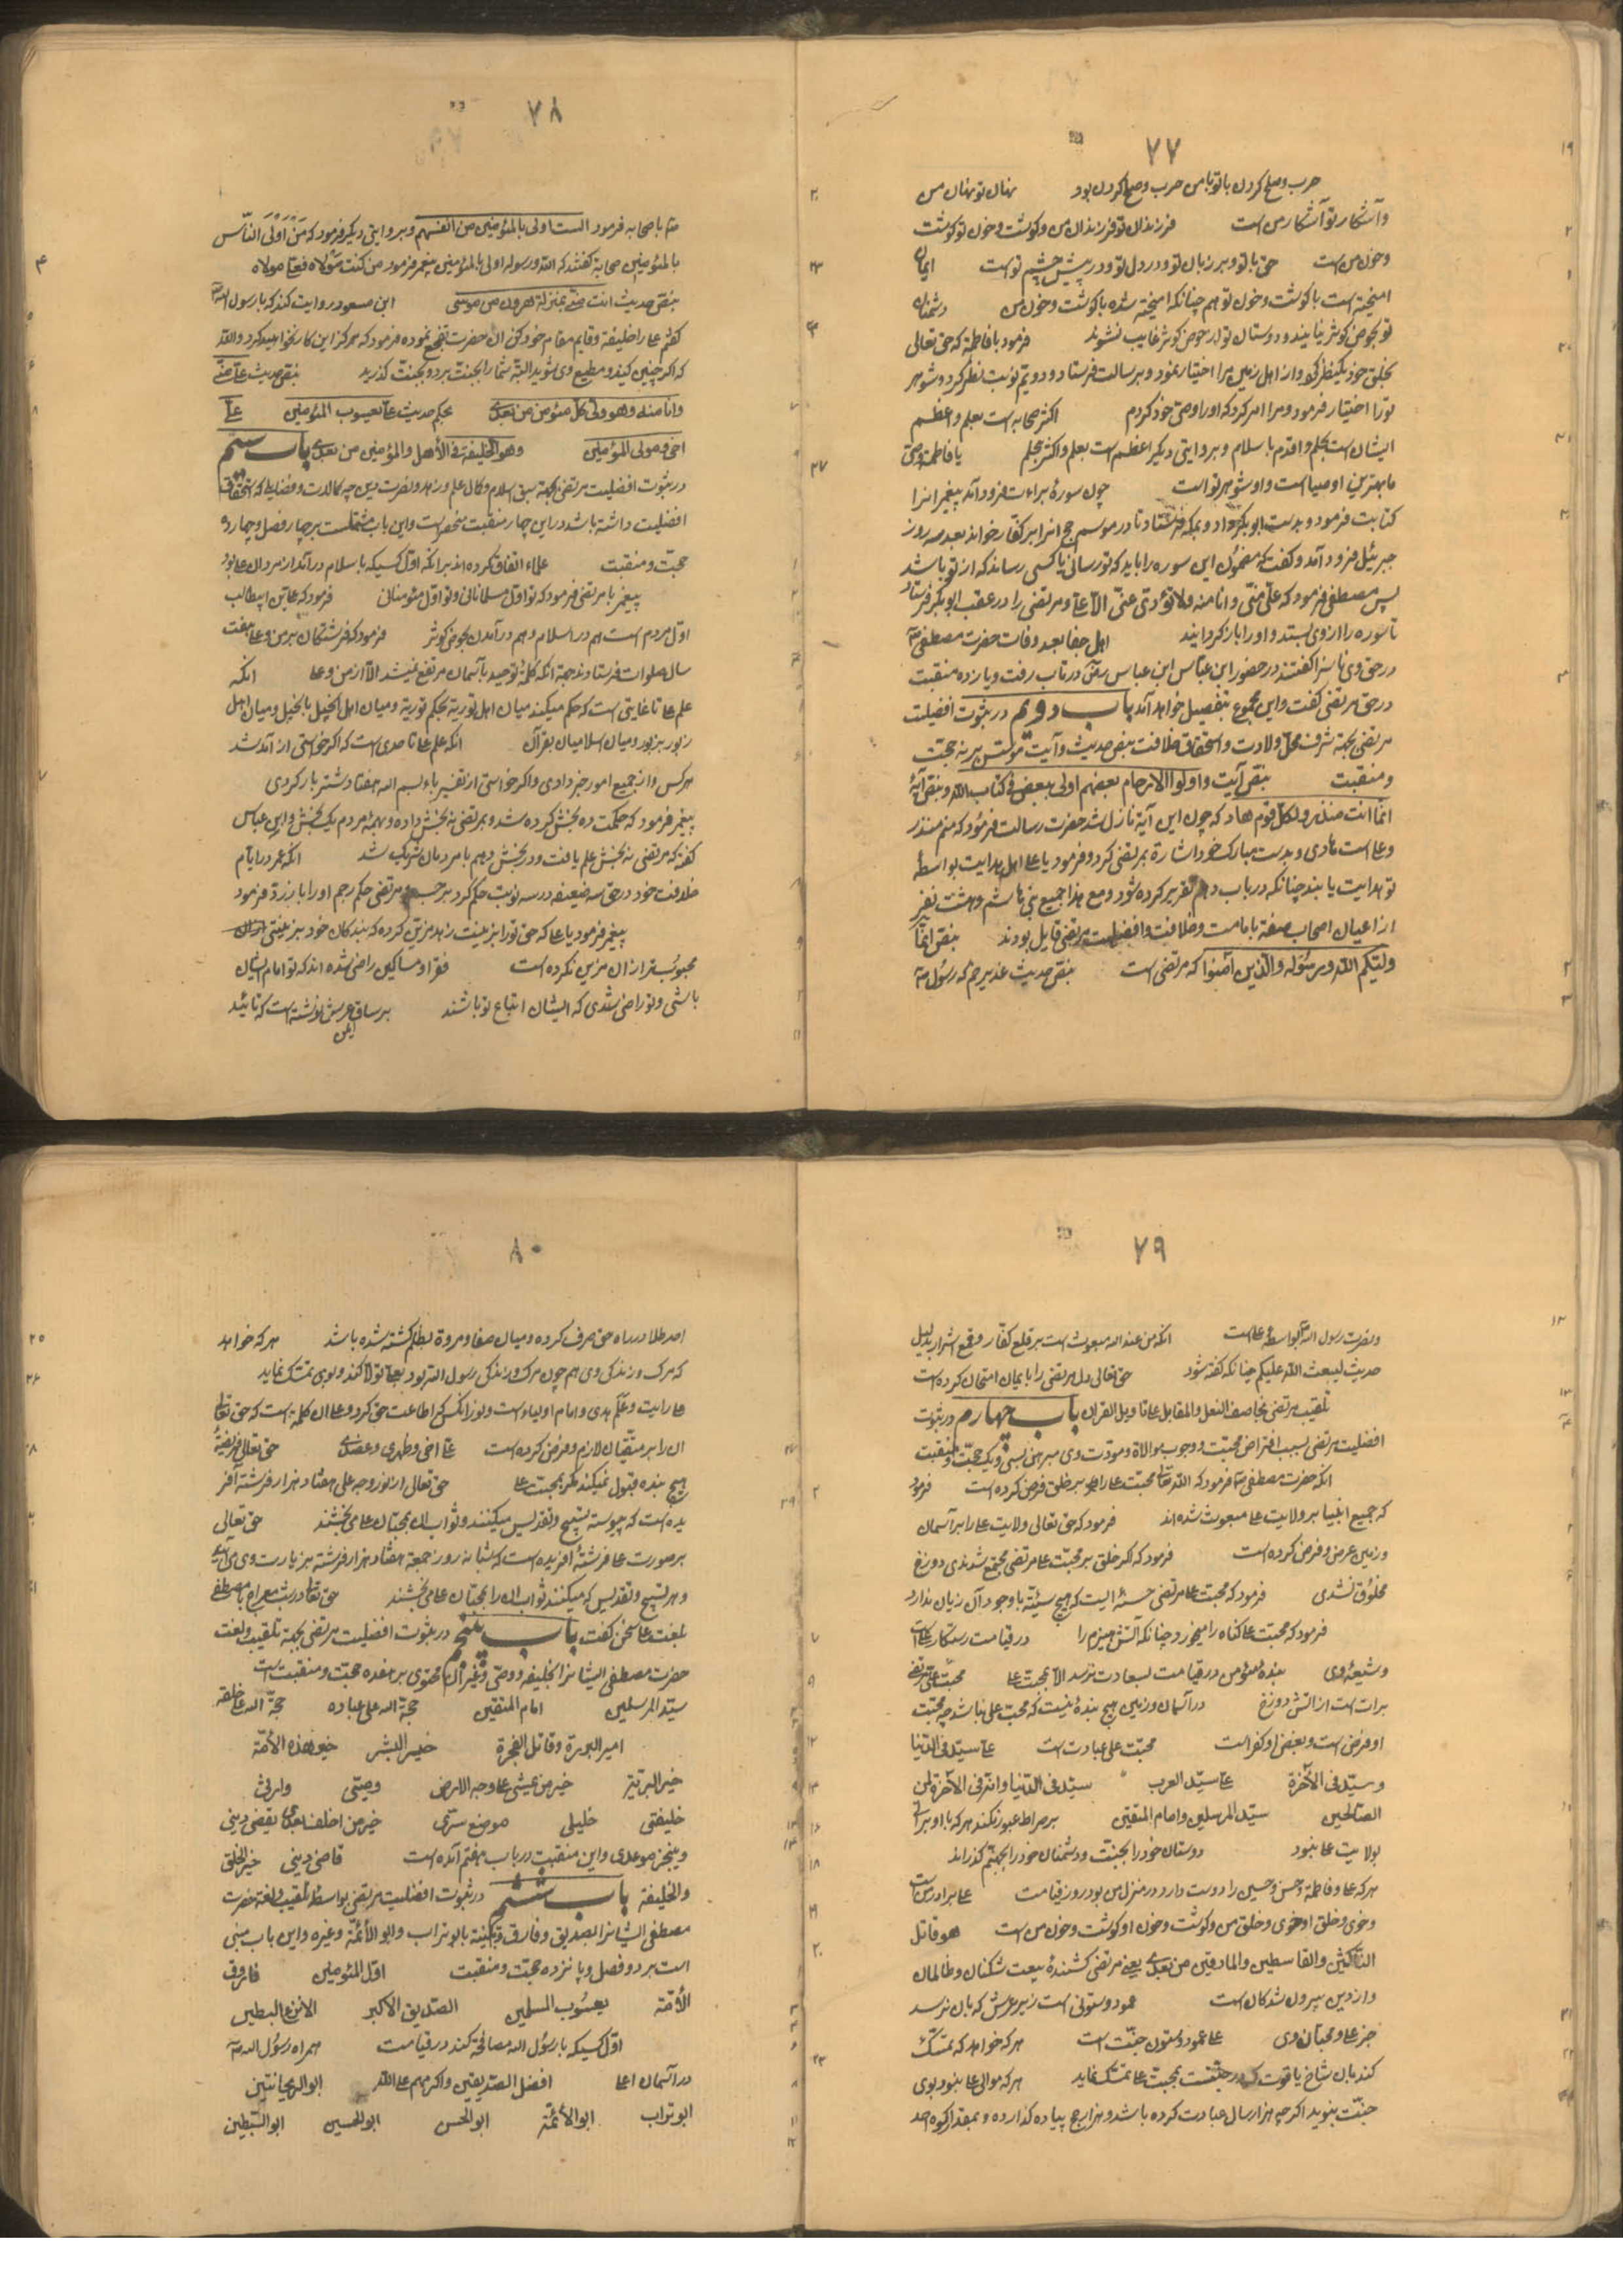 ۷۷
حرب و صلح کردن با تو با من حرب و صلح کردن بود نهان تو نهان من
و آشکار تو آشکار من است فرزندان تو فرزندان من و گوشت و خون تو گوشت
و خون من است حق با تو و بر زبان تو و در دل تو و در پیش چشم تو است ایمان
امیخته است با گوشت و خون تو هم چنانکه امیخته شده با گوشت و خون من دشمنان
تو بحوض کوثر نیایند و دوستان تو از حوض کوثر غایب نشوند فرمود با فاطمه که حق تعالی
بخلق خود یک نظر کرد و از اهل زمین مرا اختیار نمود و برسالت فرستاد و دویم نوبت نظر کرد و شوهر
ترا اختیار فرمود و مرا امر کرد که او را وصی خود کردم اکثر صحابه است بعلم و اعظم
ایشان است بحلم و اقدم باسلام و بروایتی دیگر اعظم است بعلم و اکثر بحلم یا فاطمه وصی
ما بهترین اوصیا است و او شوهر تو است چون سورهٔ براءت فرود آمد پیغمبر انرا
کتابت فرمود و بدست ابوبکر داد و بمکه فرستاد تا در موسم حج انرا بر کفار خواند بعد سه روز
جبرئیل فرود آمد و گفت که مضمون این سوره را باید که تو رسانی یا کسی رساند که از تو باشد
پس مصطفی فرمود که علی منی و انا منه ولا تؤدی عنی الا علی و مرتضی را در عقب ابوبکر فرستاد
تا سوره را از وی بستد و او را باز گردانید اهل جفا بعد وفات حضرت مصطفی
در حق وی ناسزا گفتند در حضور ابن عباس ابن عباس در تاب رفت و یازده منقبت
در حق مرتضی گفت و این مجموع بتفصیل خواهد آمد باب دویم در ثبوت افضلیت
مرتضی بجهة شرف محل ولادت و استحقاق خلافت بنص حدیث و آیت مؤسس بر نه حجت
و منقبت بنص آیت و اولوا الارحام بعضهم اولی ببعض فی کتاب الله و بنص آیهٔ
انما انت منذر ولکل قوم هاد که چون این آیه نازل شد حضرت رسالت فرمود که منم منذر
و علی است هادی و بدست مبارک خود اشارة بمرتضی کرد و فرمود یا علی اهل هدایت بواسطهٔ
تو هدایت یابند چنانکه در باب دهم تقریر کرده شود و مع هذا جمیع بنی هاشم و هشت نفر
از اعیان اصحاب صفه بامامت و خلافت و افضلیت مرتضی قایل بودند بنص انما
ولیکم الله ورسوله والذین آمنوا که مرتضی است بنص حدیث غدیر خم که رسول
۷۸
با صحابه فرمود الست اولی بالمؤمنین من انفسهم و بروایتی دیگر فرمود که من اولی الناس
بالمؤمنین صحابه گفتند که الله ورسوله اولی بالمؤمنین پیغمبر فرمود من کنت مولاه فعلی مولاه
بنص حدیث انت منی بمنزلة هرون من موسی ابن مسعود روایت کند که با رسول الله
گفتم علی را خلیفه و قایم مقام خود کن ان حضرت تفجع نموده فرمود که هرگز این کار نخواهید کرد والله
که اگر چنین کنید و مطیع وی شوید البته شما را بجنت برد و بجنت گذرید بنص حدیث علی منی
وانا منه وهو ولی کل مؤمن من بعدی بحکم حدیث علی یعسوب المؤمنین علی
اخی ومولی المؤمنین وهو الخلیفة فی الأهل والمؤمنین من بعدی باب سیم
در ثبوت افضلیت مرتضی بجهة سبق اسلام و کمال علم و زهد و نصرت دین چه کمالات و فضایل که استحقاق
افضلیت داشته باشد در این چهار منقبت منحصر است و این باب مشتملست بر چهار فصل و چهارده
حجت و منقبت علماء اتفاق کرده اند بر انکه اول کسیکه باسلام درآمد از مردان علی بود
پیغمبر با مرتضی فرمود که تو اول مسلمانانی و تو اول مؤمنانی فرمود که علی بن ابیطالب
اول مردم است هم در اسلام و هم در آمدن بحوض کوثر فرمود که فرشتگان بر من و علی هفت
سال صلوات فرستادند بجهة انکه کلمهٔ توحید بآسمان مرتفع نمیشد الا از من و علی انکه
علم علی تا غایتی است که حکم میکند میان اهل توریة بحکم توریة و میان اهل انجیل بانجیل و میان اهل
زبور بزبور و میان اسلامیان بقرآن انکه علم علی تا حدی است که اگر خواستی از آمد شد
هر کس و از جمیع امور خبر دادی و اگر خواستی از تفسیر باء بسم الله هفتاد شتر بار کردی
پیغمبر فرمود که حکمت ده بخش کرده شد و بمرتضی نه بخش داده و بهمه مردم یک بخش و ابن عباس
گفته که مرتضی نه بخش علم یافت و در بخش دهم با مردمان شریک شد انکه عمر در ایام
خلافت خود در حق سه ضعیفه در سه نوبت حکم کرد برجم و مرتضی حکم رجم او را باز زد فرمود
پیغمبر فرمود یا علی که حق ترا بزینت زهد مزین کرده که بندگان خود بزینتی
محبوبتر از ان مزین نکرده است فقرا و مساکین راضی شده اند که تو امام ایشان
باشی و تو راضی شدی که ایشان اتباع تو باشند بر ساق عرش نوشته است که تائید
ایمن
۷۹
و نصرت رسول الله بواسطهٔ علی است انکه من عند الله مبعوث است بر قلع کفار و قمع اشرار بدلیل
حدیث لیبعث الله علیکم چنانکه گفته شود حق تعالی دل مرتضی را بایمان امتحان کرده است
تلقیب مرتضی بخاصف النعل والمقاتل علی تاویل القران باب چهارم در ثبوت
افضلیت مرتضی بسبب افتراض محبت و وجوب موالاة و مودت وی مبرهن بسی و یک حجت و منقبت
انکه حضرت مصطفی فرمود که الله تعالی محبت علی را بر خلق فرض کرده است فرمود
که جمیع انبیا بر ولایت علی مبعوث شده اند فرمود که حق تعالی ولایت علی را بر آسمان
و زمین عرض و فرض کرده است فرمود که اگر خلق بر محبت علی مرتضی مجتمع شدندی دوزخ
مخلوق نشدی فرمود که محبت علی مرتضی حسنهٔ ایست که هیچ سیئة با وجود آن زیان ندارد
فرمود که محبت علی گناه را میخورد چنانکه آتش هیزم را در قیامت رستگار علی است
و شیعهٔ وی بندهٔ مؤمن در قیامت بسعادت نرسد الا بمحبت علی محبت علی مرتضی
برات است از آتش دوزخ در آسمان و زمین هیچ بندهٔ نیست که محب علی نباشد چه محبت
او فرض است و بغض او کفر است محبت علی عبادت است علی سید فی الدنیا
و سید فی الآخرة علی سید العرب سید فی الدنیا وانه فی الآخرة لمن
الصالحین سید المرسلین وامام المتقین بر صراط عبور نکند هر که با او براتی
بولایت علی نبود دوستان خود را بجنت و دشمنان خود را بجهنم گذراند
هر که علی و فاطمه و حسن و حسین را دوست دارد در منزل من بود روز قیامت علی برادر من است
و خوی و خلق او خوی و خلق من و گوشت و خون او گوشت و خون من است هو قاتل
الناکثین والقاسطین والمارقین من بعدی یعنی مرتضی کشندهٔ بیعت شکنان و ظالمان
و از دین بیرون شدکان است عمود و ستونی است زیر عرش که بان نرسد
جز علی و محبان وی علی عمود و ستون جنت است هر که خواهد که تمسک
کند بان شاخ یاقوت که در جنتست بمحبت علی تمسک نماید هر که موالی علی نبود بوی
جنت نبوید اگر چه هزار سال عبادت کرده باشد و هزار حج پیاده گذارده و بمقدار کوه احد
۸۰
احد طلا در راه حق صرف کرده و میان صفا و مروة بظلم کشته شده باشد هر که خواهد
که مرگ و زندگی وی هم چون مرگ و زندگی رسول الله بود بعلی تولا کند و بوی تمسک نماید
علی رایت و علم هدی و امام اولیاء است و نور انکس که اطاعت حق کرد و علی ان کلمه است که حق تعالی
ان را بر متقیان لازم و فرض کرده است علی اخی وظهری وعضدی حق تعالی فریضهٔ
هیچ بنده قبول نمیکند مگر بمحبت علی حق تعالی از نور وجه علی هفتاد هزار فرشته آفر
یده است که پیوسته تسبیح و تقدیس میکنند و ثواب ان بمحبان علی می بخشند حق تعالی
بر صورت علی فرشتهٔ افریده است که شبانه روز جمعه هفتاد هزار فرشته بزیارت وی می آیند
و هر تسبیح و تقدیس که میکنند ثواب ان را بمحبان علی می بخشند حق تعالی در شب معراج با مصطفی
بلغت علی سخن گفت باب پنجم در ثبوت افضلیت مرتضی بجهة تلقیب و نعت
حضرت مصطفی ایشانرا بخلیفه و وصی و غیر آن محتوی بر هفده حجت و منقبت است
سید المرسلین امام المتقین حجة الله علی عباده حجة الله علی خلقه
امیر البررة وقاتل الفجرة خیر البشر خیر هذه الأمة
خیر البریة خیر من یمشی علی وجه الارض وصیی وارثی
خلیفتی خلیلی موضع سری خیر من اخلف بعدی یقضی دینی
وینجز موعدی و این منقبت در باب هفتم آمده است قاضی دینی خیر الخلق
والخلیفة باب ششم در ثبوت افضلیت مرتضی بواسطهٔ تلقیب و لغت حضرت
مصطفی ایشانرا بصدیق و فاروق و بکنیة بابو تراب و ابو الأئمة و غیره و این باب مبنی
است بر دو فصل و پانزده حجت و منقبت اول المؤمنین فاروق
الأمة یعسوب المسلمین الصدیق الاکبر الانزع البطین
اول کسیکه با رسول الله مصافحة کند در قیامت همراه رسول الله
در آسمان اعلی افضل الصدیقین واکرمهم علی الله ابو الریحانتین
ابو تراب ابو الأئمة ابو الحسن ابو الحسین ابو السبطین